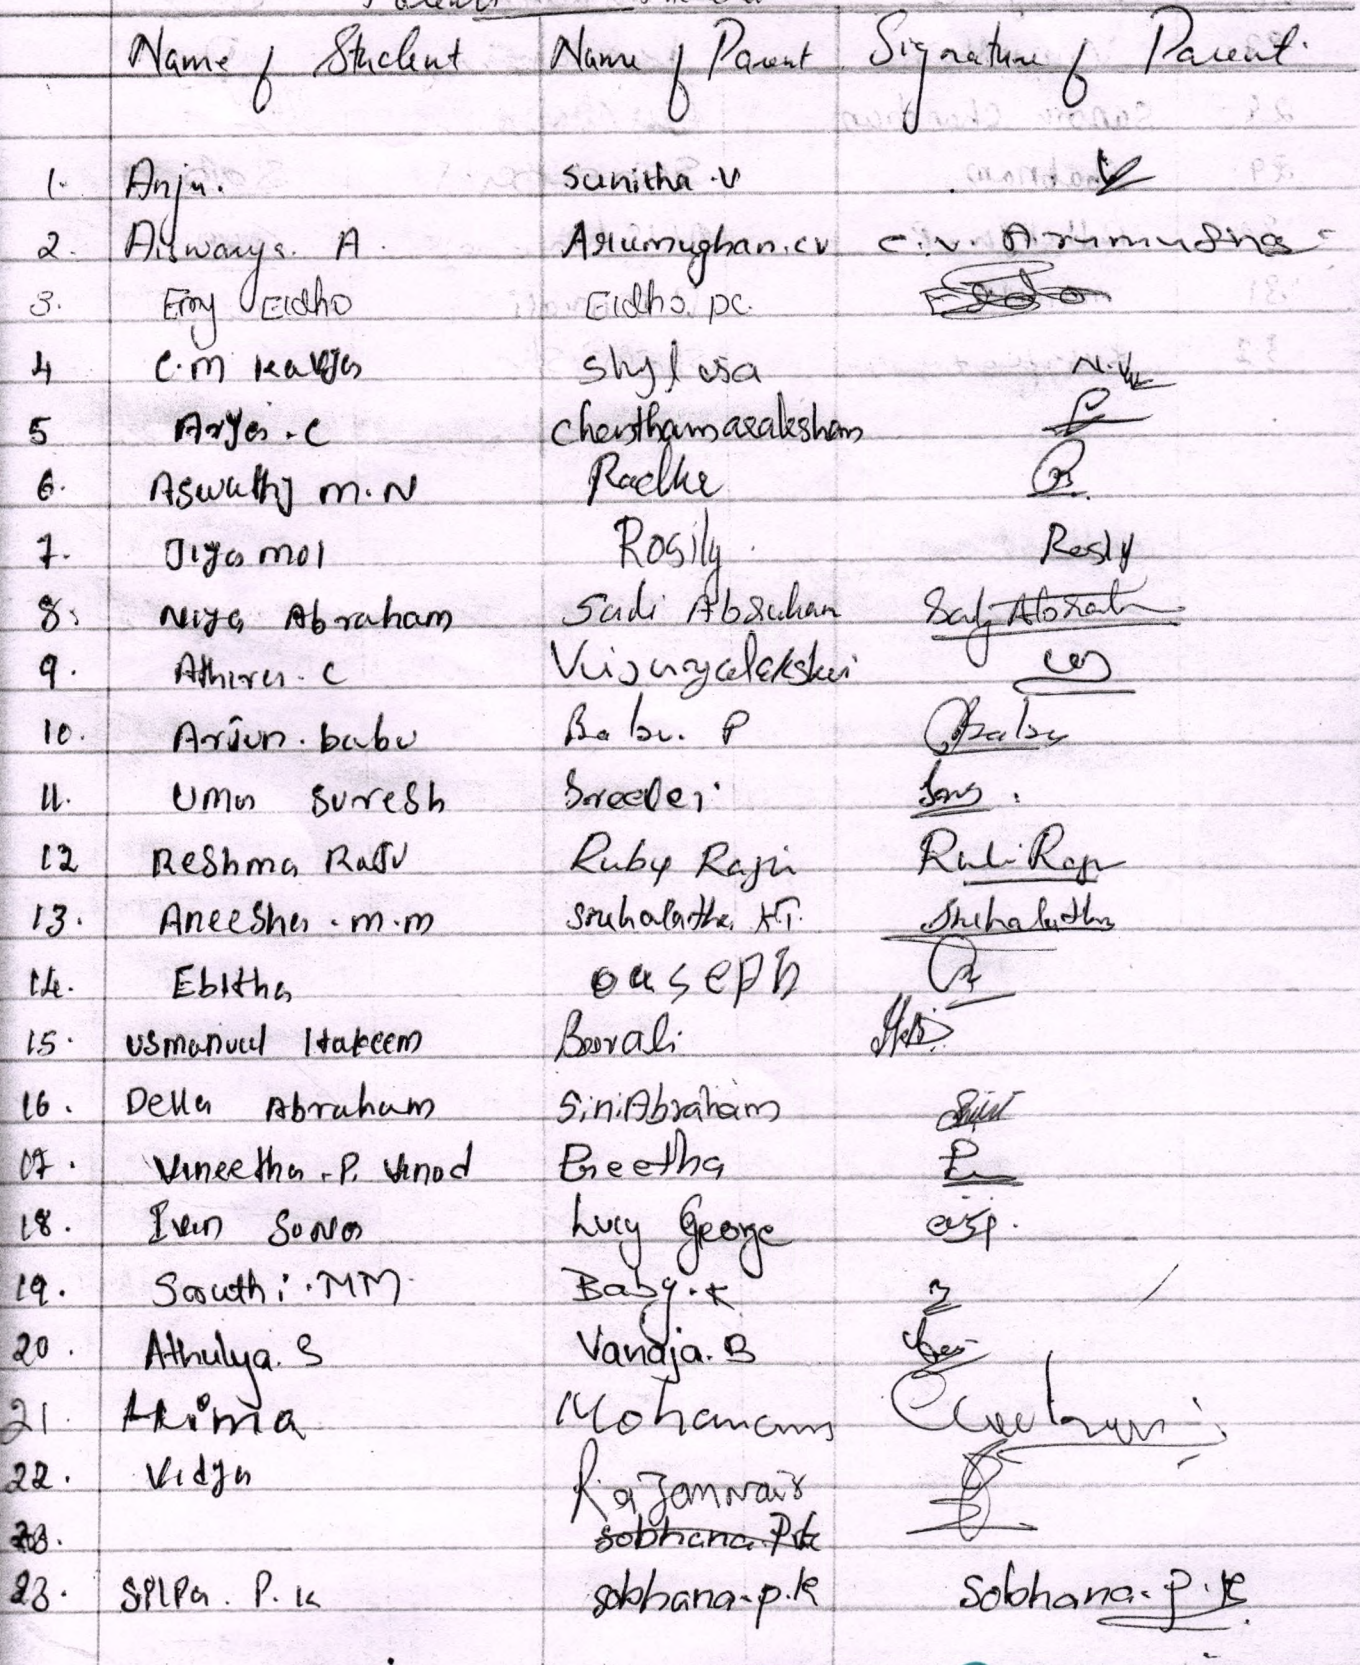 Name of Student Name of Parent Signature of Parent
1. Anju. Sunitha.V
2. Aiswarya. A. Arumughan.cv C.V. Arumugha
3. Emy Eldho Eldho pc. Eldho
4 C.M Kavya Shylaja
5 Arya.C Chenthamarakshan
6. Aswathy M.N Radha
7. Jiya mol Rosily Rosly
8. Niya Abraham Sadi Abraham
9. Athira. C Vijayalakshmi
10. Arjun.babu Babu. P Babu
11. Uma Suresh Sreedevi
12 Reshma Raju Ruby Raju Rubi Raju
13. Aneesha.m.m Snehalatha K.T. Snehalatha
14. Ebitha ouseph
15. Usmanul Hakeem Beerali
16. Della Abraham Sini Abraham Sini
17. Vineetha.P. Vinod Preetha
18. Ivin Sona Lucy George
19. Sruthi.MM Baby.K
20. Athulya.S Vanaja.B
21. Athima Mohanan
22. Vidya Rajannair
23. sobhana P.K
23. Silpa. P.K sobhana.p.k Sobhana.p.k